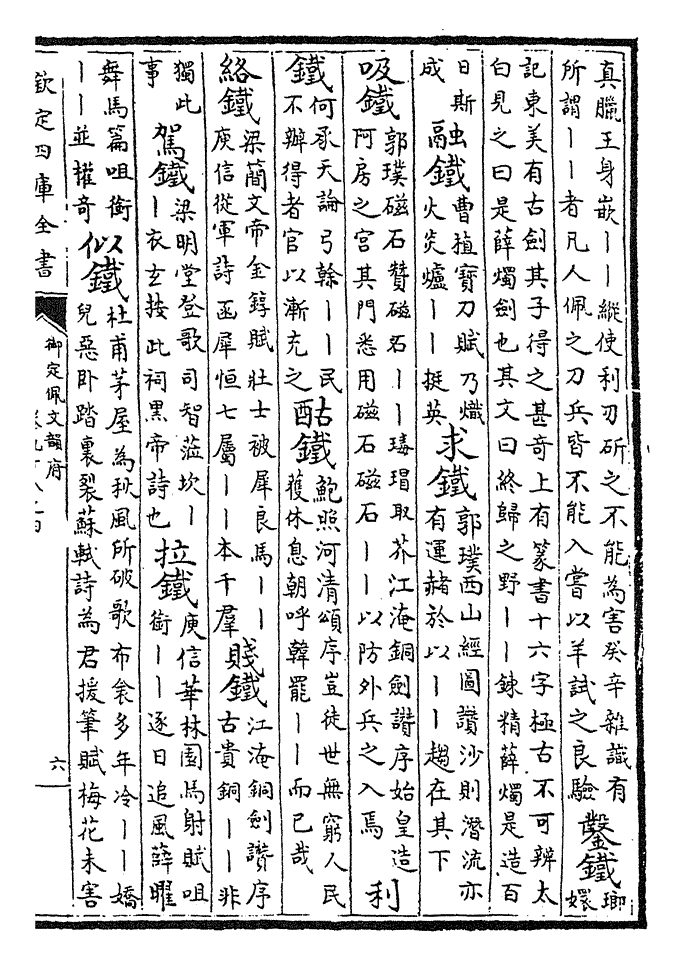 真臘王身嵌丨丨縱使利刃斫之不能為害癸辛雜識有
所謂丨丨者凡人佩之刀兵皆不能入嘗以羊試之良驗
鑿鐵
瑯
嬛
記東美有古劍其子得之甚奇上有篆書十六字極古不可辨太
白見之曰是薛燭劍也其文曰終歸之野丨丨鍊精薛燭是造百
日斯
成
融鐵
曹植寶刀賦乃熾
火炎爐丨丨挺英
求鐵
郭璞西山經圖讚沙則潛流亦
有運赭於以丨丨趨在其下
吸鐵
郭璞磁石贊磁石丨丨瑇瑁取芥江淹銅劍讚序始皇造
阿房之宮其門悉用磁石磁石丨丨以防外兵之入焉
利
鐵
何承天論弓榦丨丨民
不辦得者官以漸充之
酤鐵
鮑照河清頌序豈徒世無窮人民
獲休息朝呼韓罷丨丨而已哉
絡鐵
梁簡文帝金錞賦壯士被犀良馬丨丨
庾信從軍詩函犀恒七屬丨丨本千羣
賤鐵
江淹銅劍讚序
古貴銅丨丨非
獨此
事
駕鐵
梁明堂登歌司智蒞坎丨
丨衣玄按此祠黑帝詩也
拉鐵
庾信華林園馬射賦咀
銜丨丨逐日追風薛曜
舞馬篇咀銜
丨丨並權奇
似鐵
杜甫茅屋為秋風所破歌布衾多年冷丨丨嬌
兒惡卧踏裏裂蘇軾詩為君援筆賦梅花未害
欽定四庫全書
御定佩文韻府
六